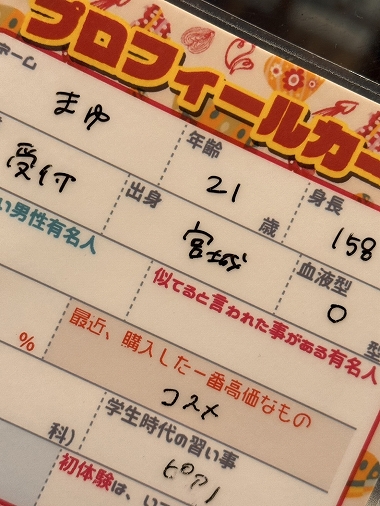 プロフィールカー
ネーム
まゆ
年齢
21
歳
身長
158
受付
出身
宮城
血液型
O
型
い男性有名人
似てると言われた事がある有名人
%
最近、購入した一番高価なもの
コスメ
学生時代の習い事
ピアノ
科)
初体験は、い